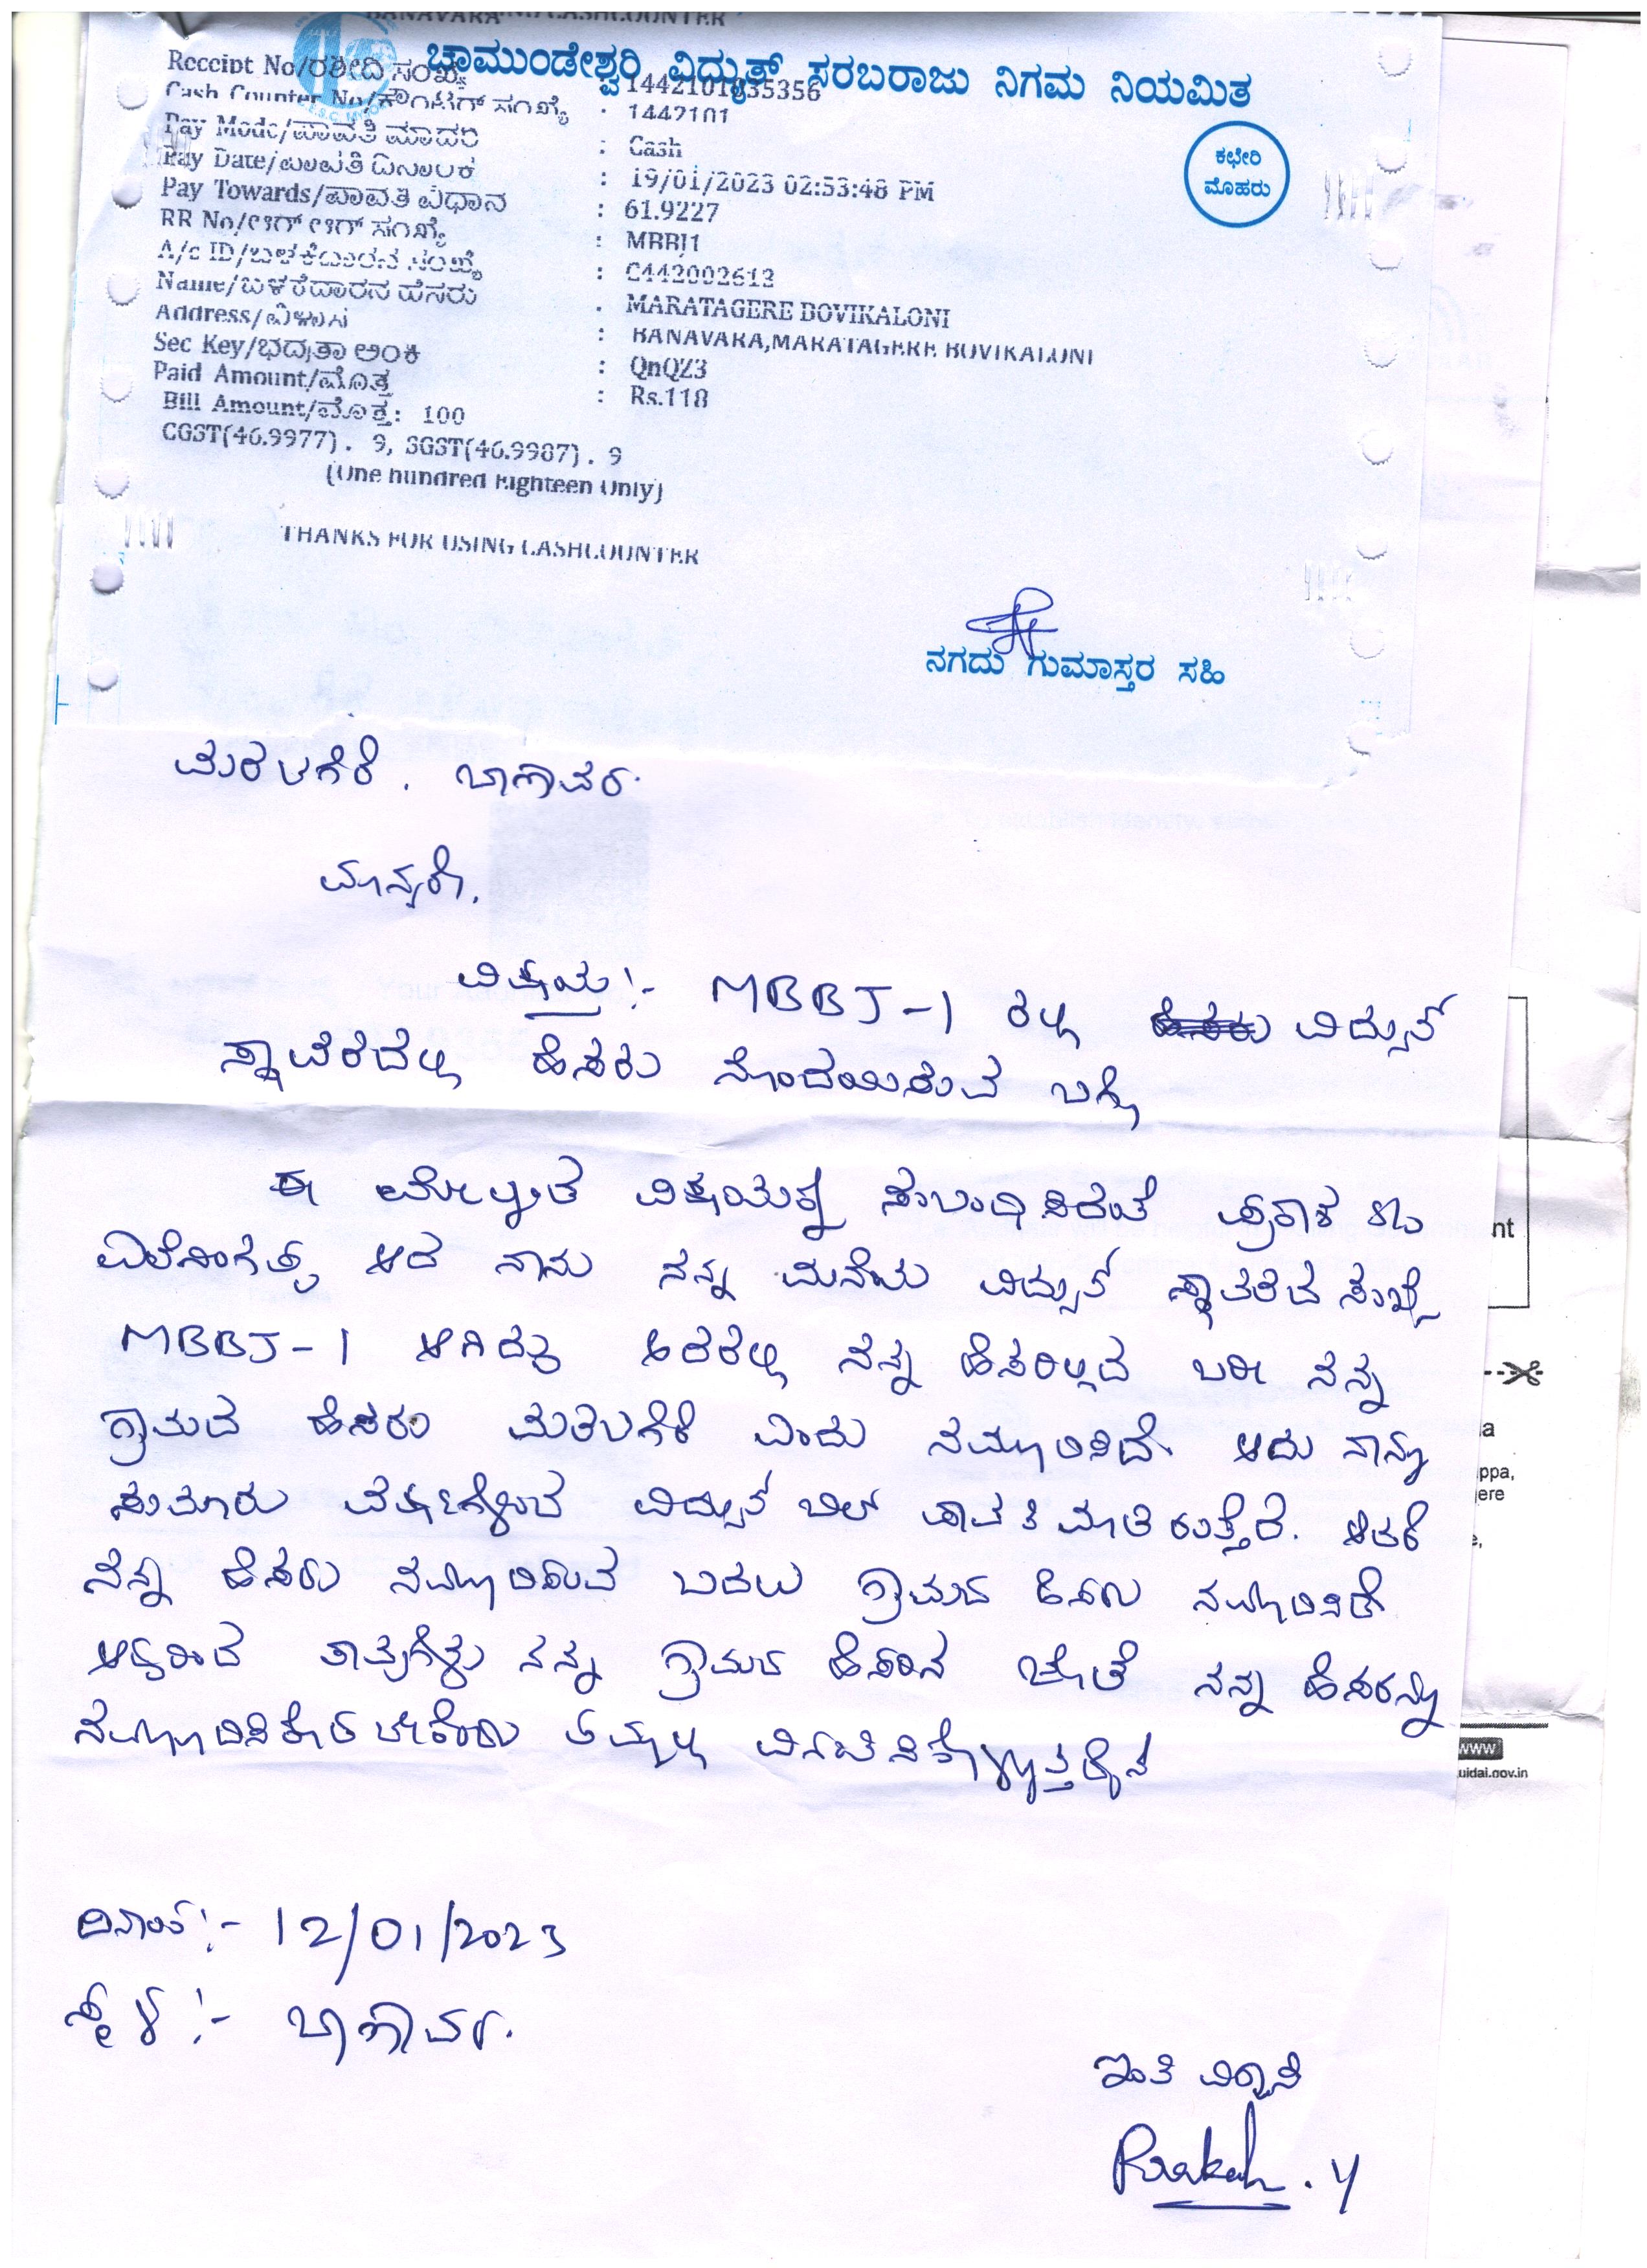 BANAVARA CASHCOUNTER
ಚಾಮುಂಡೇಶ್ವರಿ ವಿದ್ಯುತ್ ಸರಬರಾಜು ನಿಗಮ ನಿಯಮಿತ
ಕಛೇರಿ
ಮೊಹರು
Receipt No/ರಶೀದಿ ಸಂಖ್ಯೆ : 1442101835356
Cash Counter No/ಕೌಂಟರ್ ಸಂಖ್ಯೆ : 1442101
Pay Mode/ಪಾವತಿ ಮಾದರಿ : Cash
Pay Date/ಪಾವತಿ ದಿನಾಂಕ : 19/01/2023 02:53:48 PM
Pay Towards/ಪಾವತಿ ವಿಧಾನ : 61.9227
RR No/ಆರ್ ಆರ್ ಸಂಖ್ಯೆ : MBBJ1
A/c ID/ಬಳಕೆದಾರನ ಸಂಖ್ಯೆ : C442002613
Name/ಬಳಕೆದಾರನ ಹೆಸರು : MARATAGERE BOVIKALONI
Address/ವಿಳಾಸ : BANAVARA,MARATAGERE BOVIKALONI
Sec Key/ಭದ್ರತಾ ಅಂಕಿ : QnQZ3
Paid Amount/ಮೊತ್ತ : Rs.118
Bill Amount/ಮೊತ್ತ: 100
CGST(46.9977). 9, SGST(46.9987). 9
(One hundred Eighteen Only)
THANKS FOR USING CASHCOUNTER
ನಗದು ಗುಮಾಸ್ತರ ಸಹಿ
ಬಾಣಾವರ.
ಮಾನ್ಯರೇ,
ವಿಷಯ :- MBBJ-1 ರಲ್ಲಿ ವಿದ್ಯುತ್
ಸ್ಥಾವರದಲ್ಲಿ ಹೆಸರು ನೊಂದಾಯಿಸುವ ಬಗ್ಗೆ
ಈ ಮೇಲ್ಕಂಡ ವಿಷಯಕ್ಕೆ ಸಂಬಂಧಿಸಿದಂತೆ ಪ್ರಕಾಶ
ಆದ ನಾನು ನನ್ನ ಮನೆಯ ವಿದ್ಯುತ್ ಸ್ಥಾವರದ ಸಂಖ್ಯೆ
MBBJ-1 ಆಗಿದ್ದು ಅದರಲ್ಲಿ ನನ್ನ ಹೆಸರಿಲ್ಲದೆ ಬರೀ ನನ್ನ
ಗ್ರಾಮದ ಹೆಸರು ಎಂದು ನಮೂದಿಸಿದೆ. ಅದು ನಾನು
ಸುಮಾರು ವರ್ಷಗಳಿಂದ ವಿದ್ಯುತ್ ಬಿಲ್ ಪಾವತಿ ಮಾಡಿರುತ್ತೇನೆ.
ನನ್ನ ಹೆಸರು ನಮೂದಿಸುವ ಬದಲು ಗ್ರಾಮದ ಹೆಸರು ನಮೂದಿಸಿದೆ
ಆದ್ದರಿಂದ ತಾವುಗಳು ನನ್ನ ಗ್ರಾಮದ ಹೆಸರಿನ ಜೊತೆ ನನ್ನ ಹೆಸರನ್ನು
ನಮೂದಿಸಿಕೊಡಬೇಕೆಂದು ತಮ್ಮಲ್ಲಿ
ದಿನಾಂಕ :- 12/01/2023
ಸ್ಥಳ :- ಬಾಣಾವರ.
ಇಂತಿ ವಿಶ್ವಾಸಿ
Prakash . Y
nt
a
ppa,
ere
e,
www
uidai.gov.in